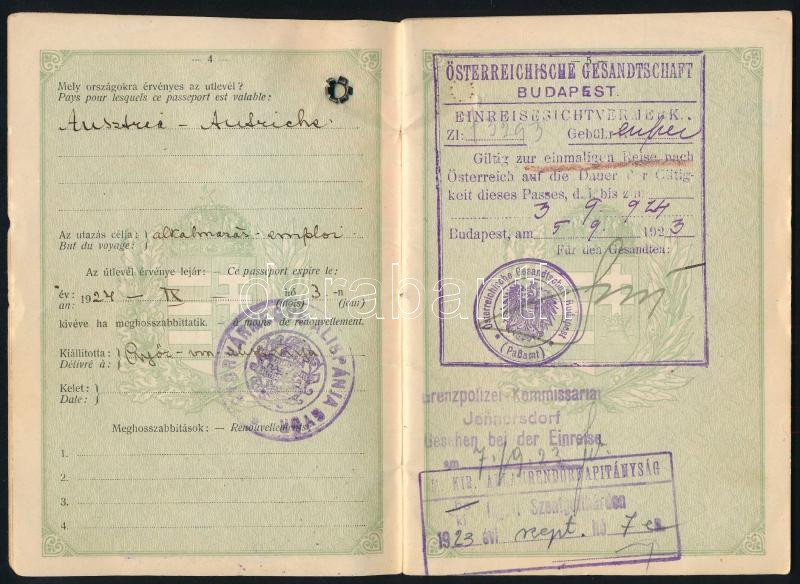 — 4 —
Mely országokra érvényes az utlevél?
Pays pour lesquels ce passeport est valable:
Ausztria - Autriche
Az utazás célja:
But du voyage:
alkalmazás - emploi
Az útlevél érvénye lejár: — Cé passeport expire le:
év:
an:
1924 - IX
hó
(mois)
3 -n
(jour)
kivéve ha meghosszabbittatik. — à moins de renouvellement.
Kiállitotta:
Délivré à:
Győr
Kelet:
Date:
Meghosszabbitások: — Renouvellements:
1.
2.
3.
4.
5
ÖSTERREICHISCHE GESANDTSCHAFT
BUDAPEST.
EINREISESICHTVERMERK
Zl: Gebühr
Giltig zur einmaligen Reise nach
Österreich auf die Dauer der Gültig-
keit dieses Passes, d. i. bis zum
3 9 924
Budapest, am 5 9. 1923
Für den Gesandten:
Österreichische Gesandtschaft Budapest
(Paßamt)
Grenzpolizei-Kommissariat
Jennersdorf
Gesehen bei der Einreise
am 7./9. 23
M. KIR. ÁLL. RENDŐRKAPITÁNYSÁG
Szentgotthárdon
1923 évi szept. hó 7 én
darabanth